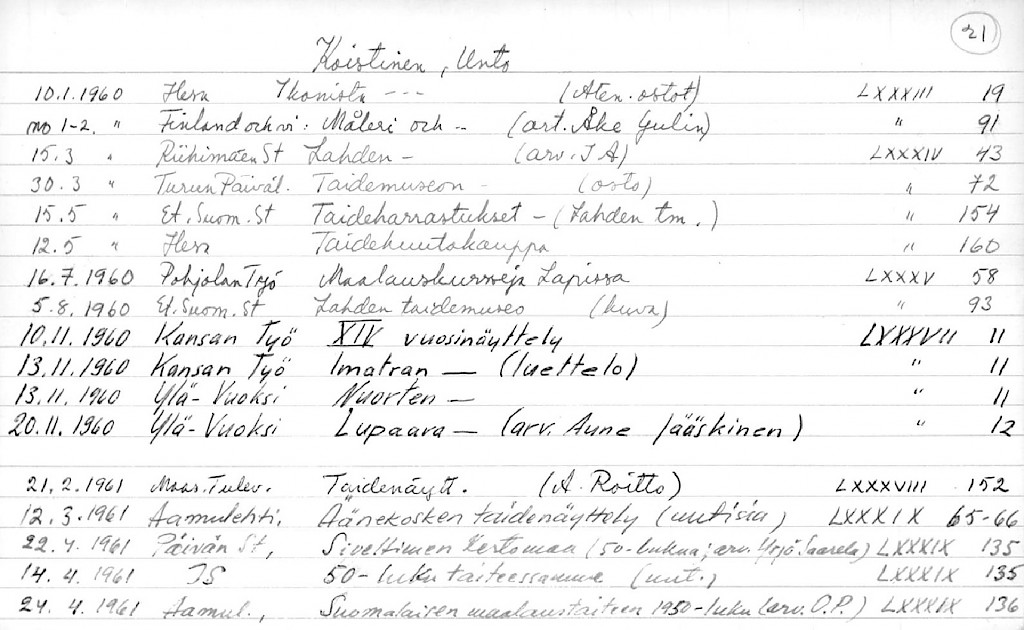 21
Koistinen, Unto
10.1.1960 Hesa Ikonista --- (Aten. ostot) LXXXIII 19
no 1-2. " Finland och vi: Måleri och -- (art. Åke Gulin) " 91
15.3 " Riihimäen St Lahden - (arv. I A) LXXXIV 43
30.3 " Turun Päiväl. Taidemuseon - (osto) " 72
15.5 " Et. Suom. St Taideharrastukset - (Lahden tm.) " 154
12.5 " Hesa Taidehuutokauppa " 160
16.7.1960 Pohjolan Työ Maalauskursseja Lapissa LXXXV 58
5.8.1960 Et. Suom. St Lahden taidemuseo (kuva) " 93
10.11.1960 Kansan Työ XIV vuosinäyttely LXXXVII 11
13.11.1960 Kansan Työ Imatran — (luettelo) " 11
13.11.1960 Ylä-Vuoksi Nuorten — " 11
20.11.1960 Ylä-Vuoksi Lupaava — (arv. Aune Jääskinen) " 12
21.2.1961 Maas. Tulev. Taidenäytt. (A. Roitto) LXXXVIII 152
12.3.1961 Aamulehti, Äänekosken taidenäyttely (uutisia) LXXXIX 65-66
22.4.1961 Päivän St, Siveltimen kertomaa (50-lukua; arv. Yrjö Saarela) LXXXIX 135
14.4.1961 IS 50-luku taiteessamme (uut.) LXXXIX 135
24.4.1961 Aamul., Suomalaisen maalaustaiteen 1950-luku (arv. O.P.) LXXXIX 136